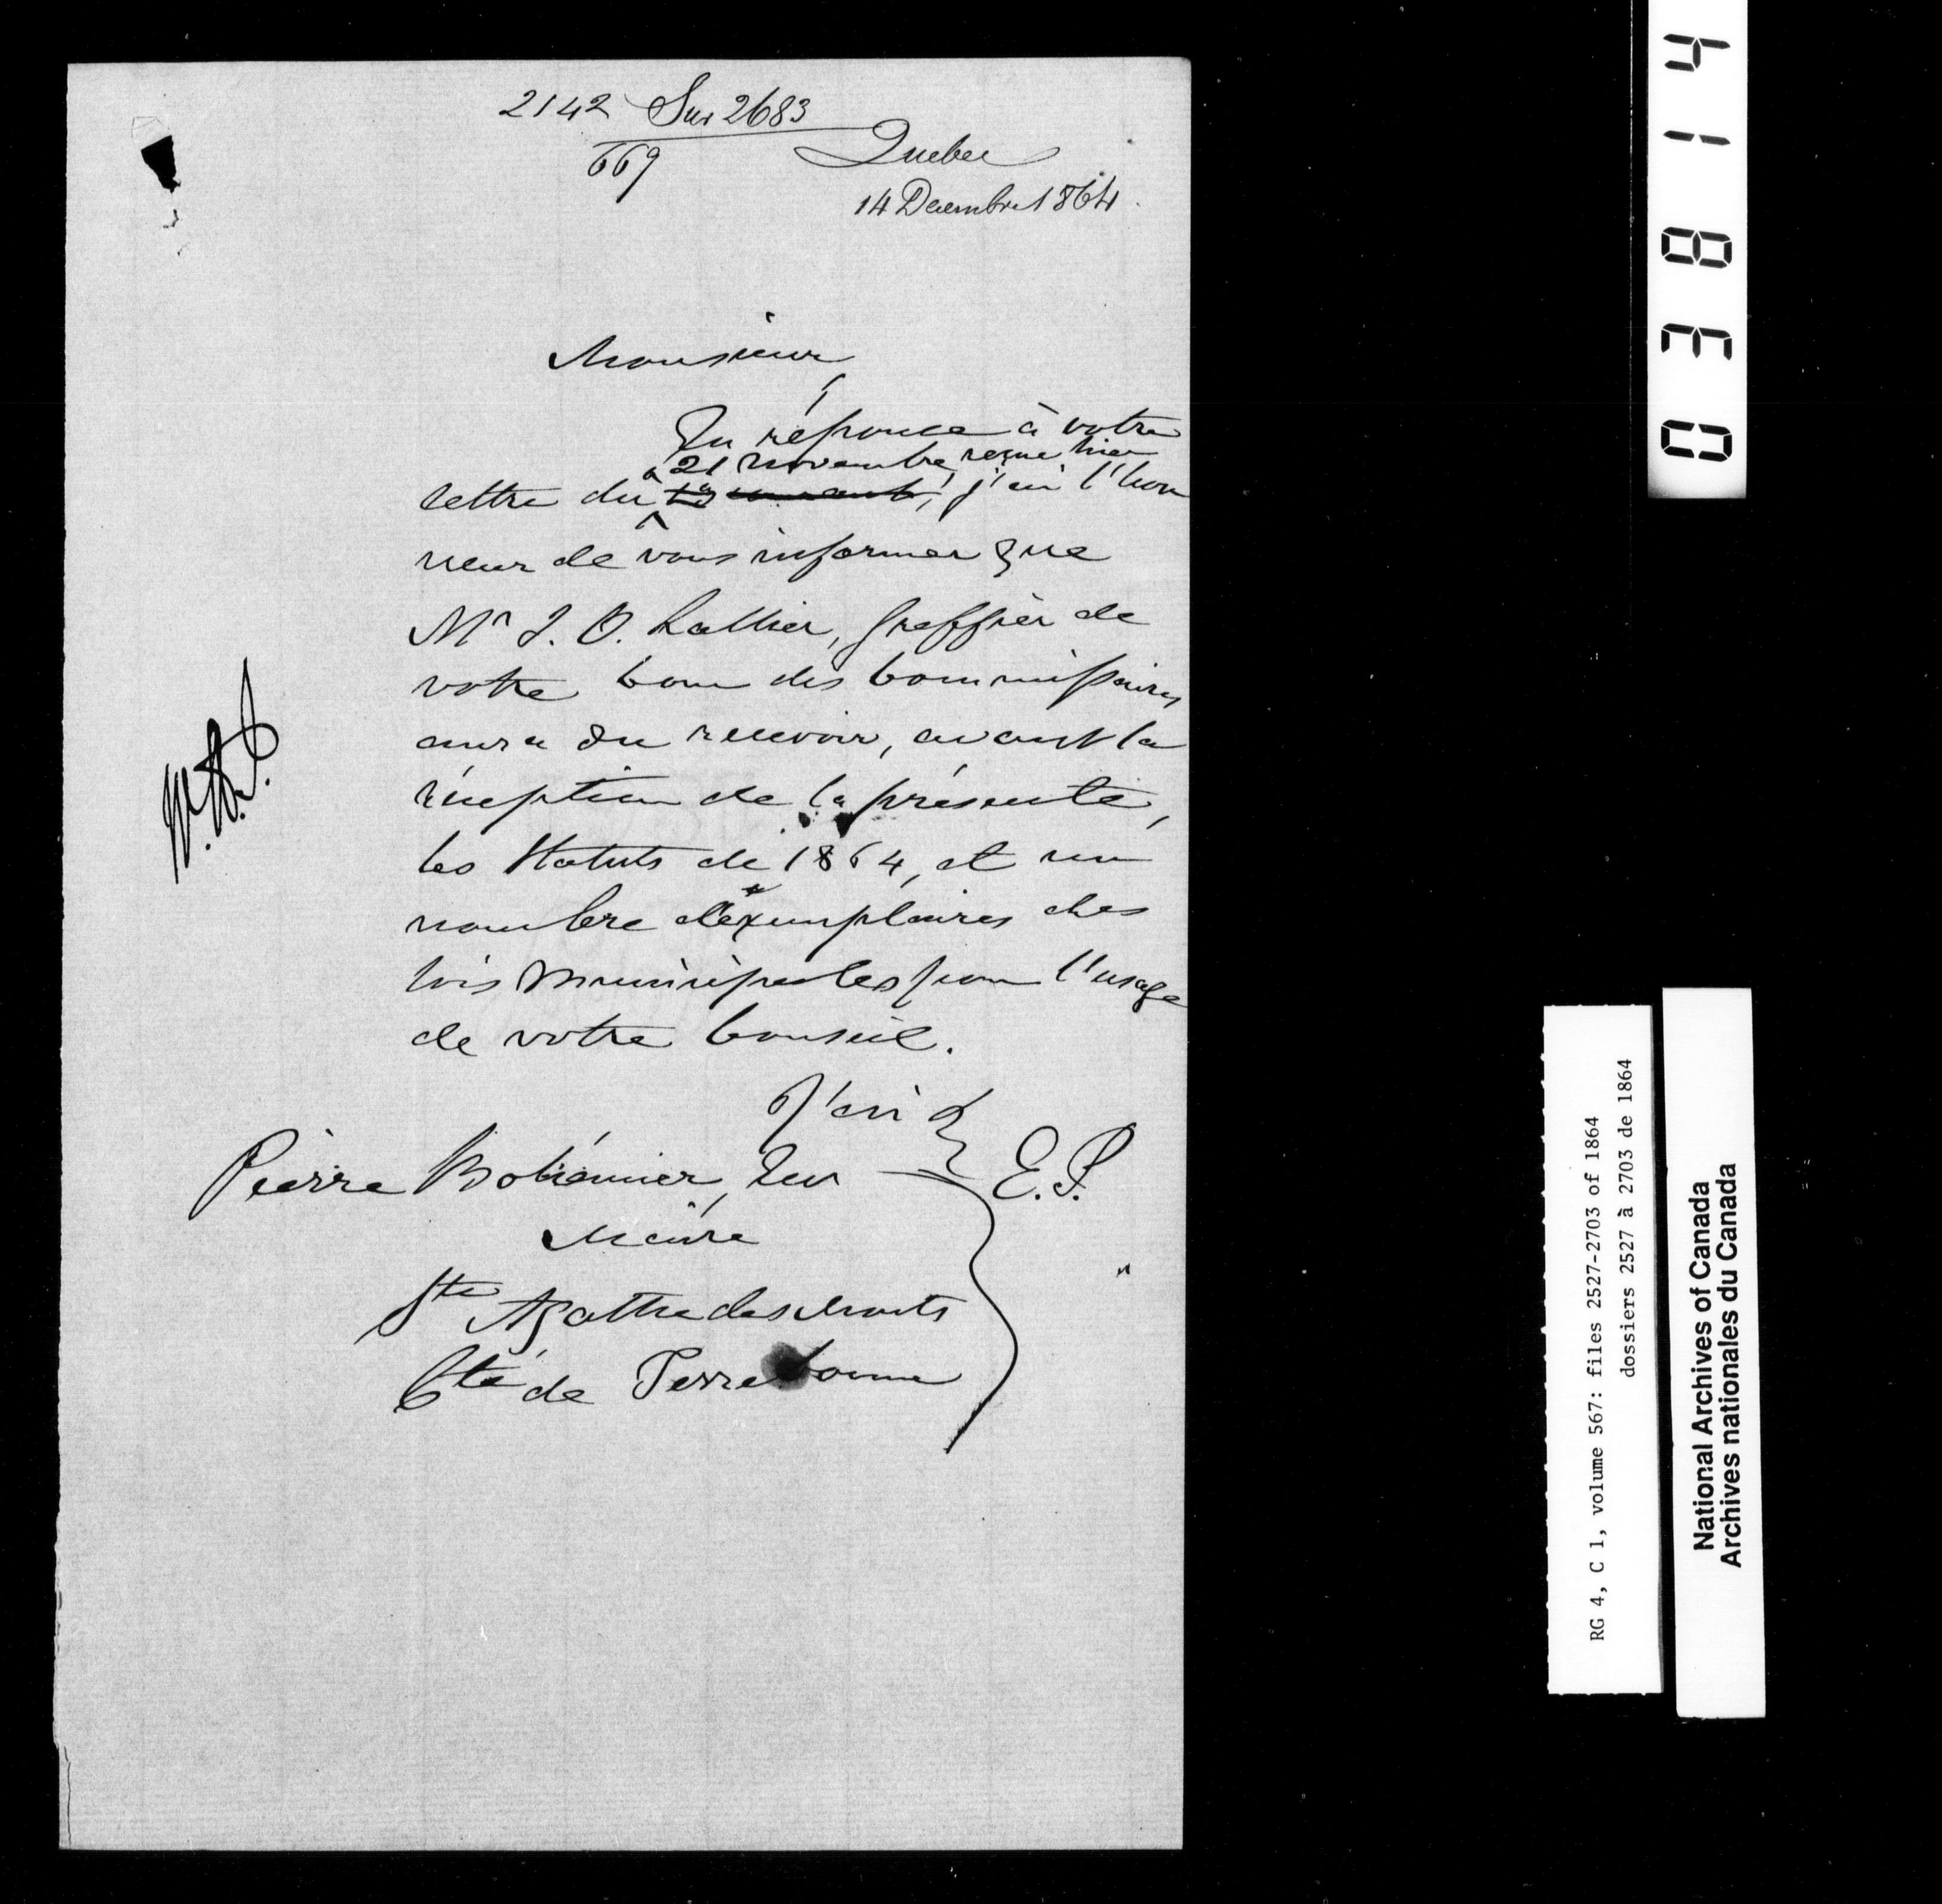 2142 Sur 2683
669
Quebec
14 Decembre 1864.
Monsieur,
En réponce à votre
21 Novembre, reçue hier
lettre du courant, j'ai l'hon
neur de vous informer que
Mr J. O. Lallier, Greffier de
votre Cour des Commissaires
aura du recevoir, avant la
réception de la présente,
les Statuts de 1864, et un
nombre d'exemplaires des
lois Municipales pour l'usage
de votre Conseil.
J'ai &
E. P.
Pierre Bohémier, Ecr
Maire
Ste Agathe des Monts
Cté de Terrebonne
03814
RG 4, C 1, volume 567: files 2527-2703 of 1864
dossiers 2527 à 2703 de 1864
National Archives of Canada
Archives nationales du Canada